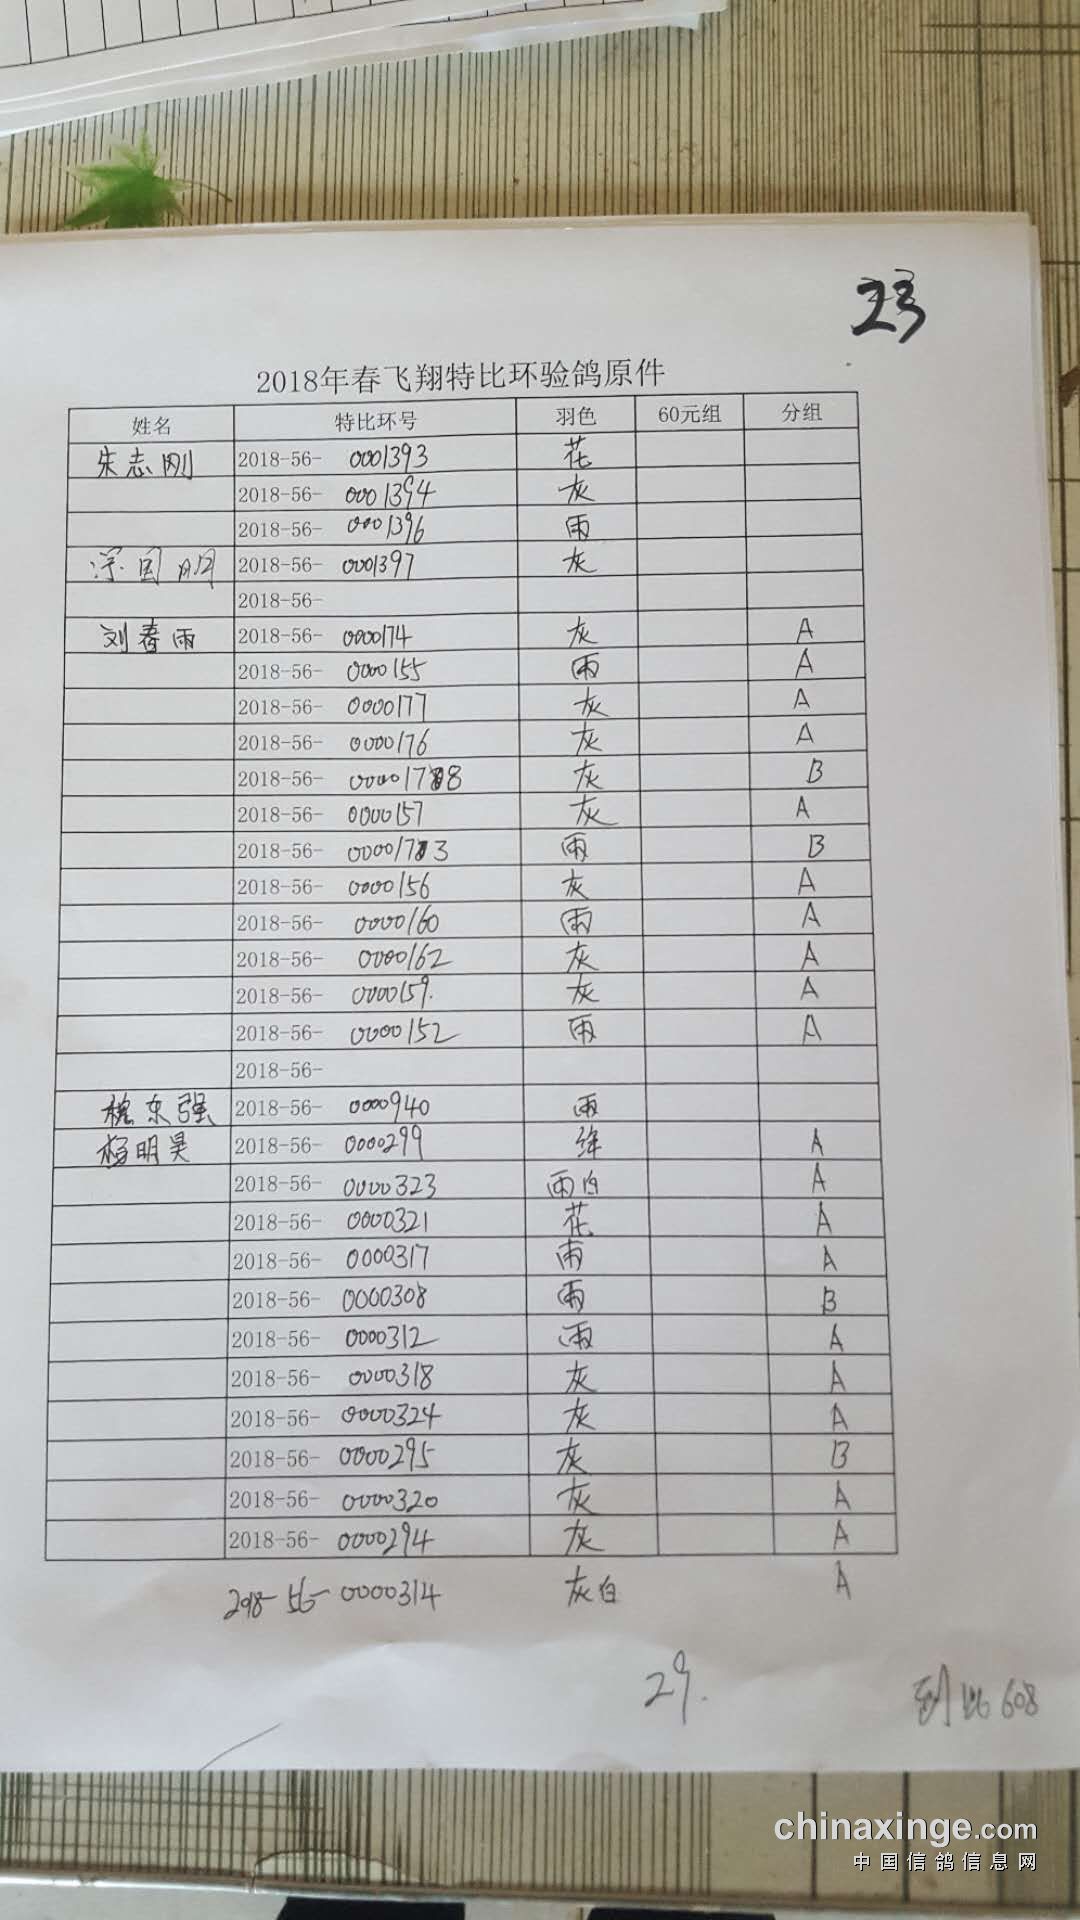 23
2018年春飞翔特比环验鸽原件
姓名 特比环号 羽色 60元组 分组
朱志刚 2018-56- 0001393 花
2018-56- 0001394 灰
2018-56- 0001396 雨
国明 2018-56- 0001397 灰
2018-56-
刘春雨 2018-56- 0000174 灰 A
2018-56- 0000155 雨 A
2018-56- 0000177 灰 A
2018-56- 0000176 灰 A
2018-56- 0000178 灰 B
2018-56- 0000157 灰 A
2018-56- 0000173 雨 B
2018-56- 0000156 灰 A
2018-56- 0000160 雨 A
2018-56- 0000162 灰 A
2018-56- 0000159. 灰 A
2018-56- 0000152 雨 A
2018-56-
东强 2018-56- 0000940 雨
杨明昊 2018-56- 0000299 绛 A
2018-56- 0000323 雨白 A
2018-56- 0000321 花 A
2018-56- 0000317 雨 A
2018-56- 0000308 雨 B
2018-56- 0000312 雨 A
2018-56- 0000318 灰 A
2018-56- 0000324 灰 A
2018-56- 0000295 灰 B
2018-56- 0000320 灰 A
2018-56- 0000294 灰 A
2018-56- 0000314 灰白 A
29.
到 608
chinaxinge.com
中国信鸽信息网